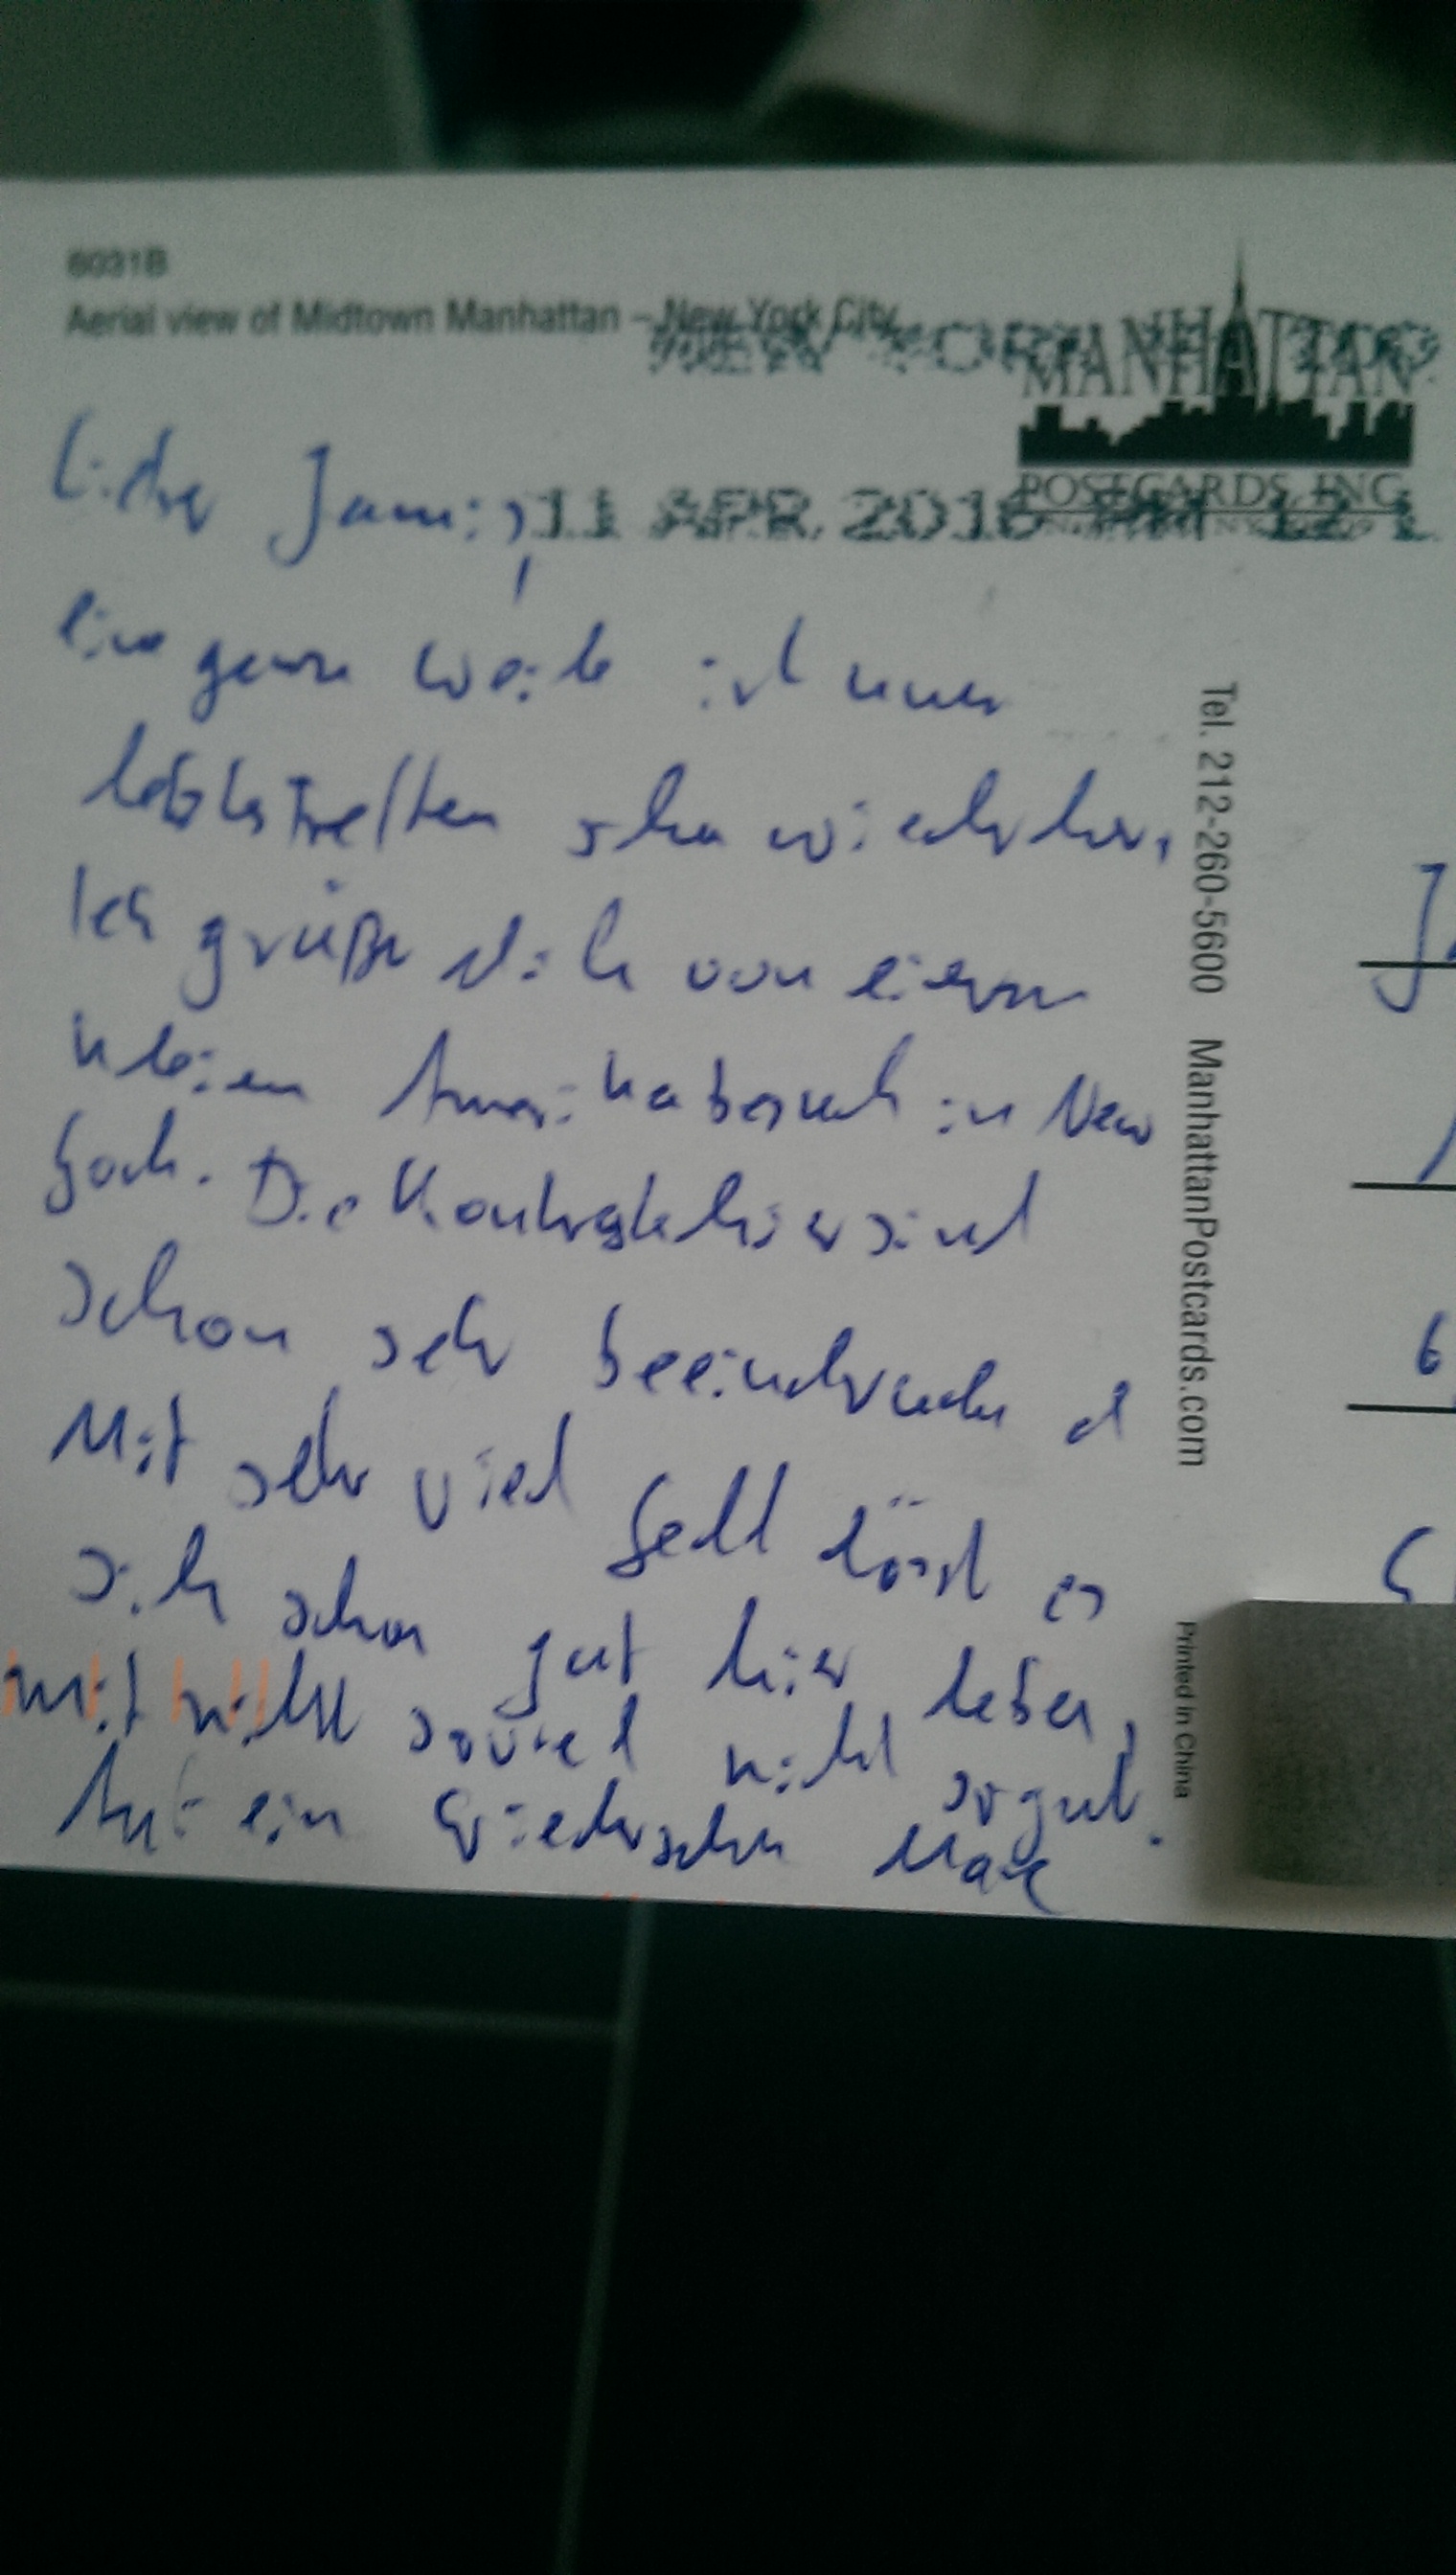 6031B
Aerial view of Midtown Manhattan – New York City
NEW YORK
MANHATTAN
POSTCARDS, INC.
11 APR 2016 PM 12 L
Lieber Janni,
eine ganze Weile ist unser
letztes Treffen schon wieder her,
Ich grüße dich von einem
kleinen Amerikabesuch in New
York. Die Kontraste hier sind
schon sehr beeindruckend
Mit sehr viel Geld lässt es
sich schon gut hier leben,
mit nicht soviel nicht so gut.
Auf ein Wiedersehen
Tel. 212-260-5600 ManhattanPostcards.com
Printed in China
J
6